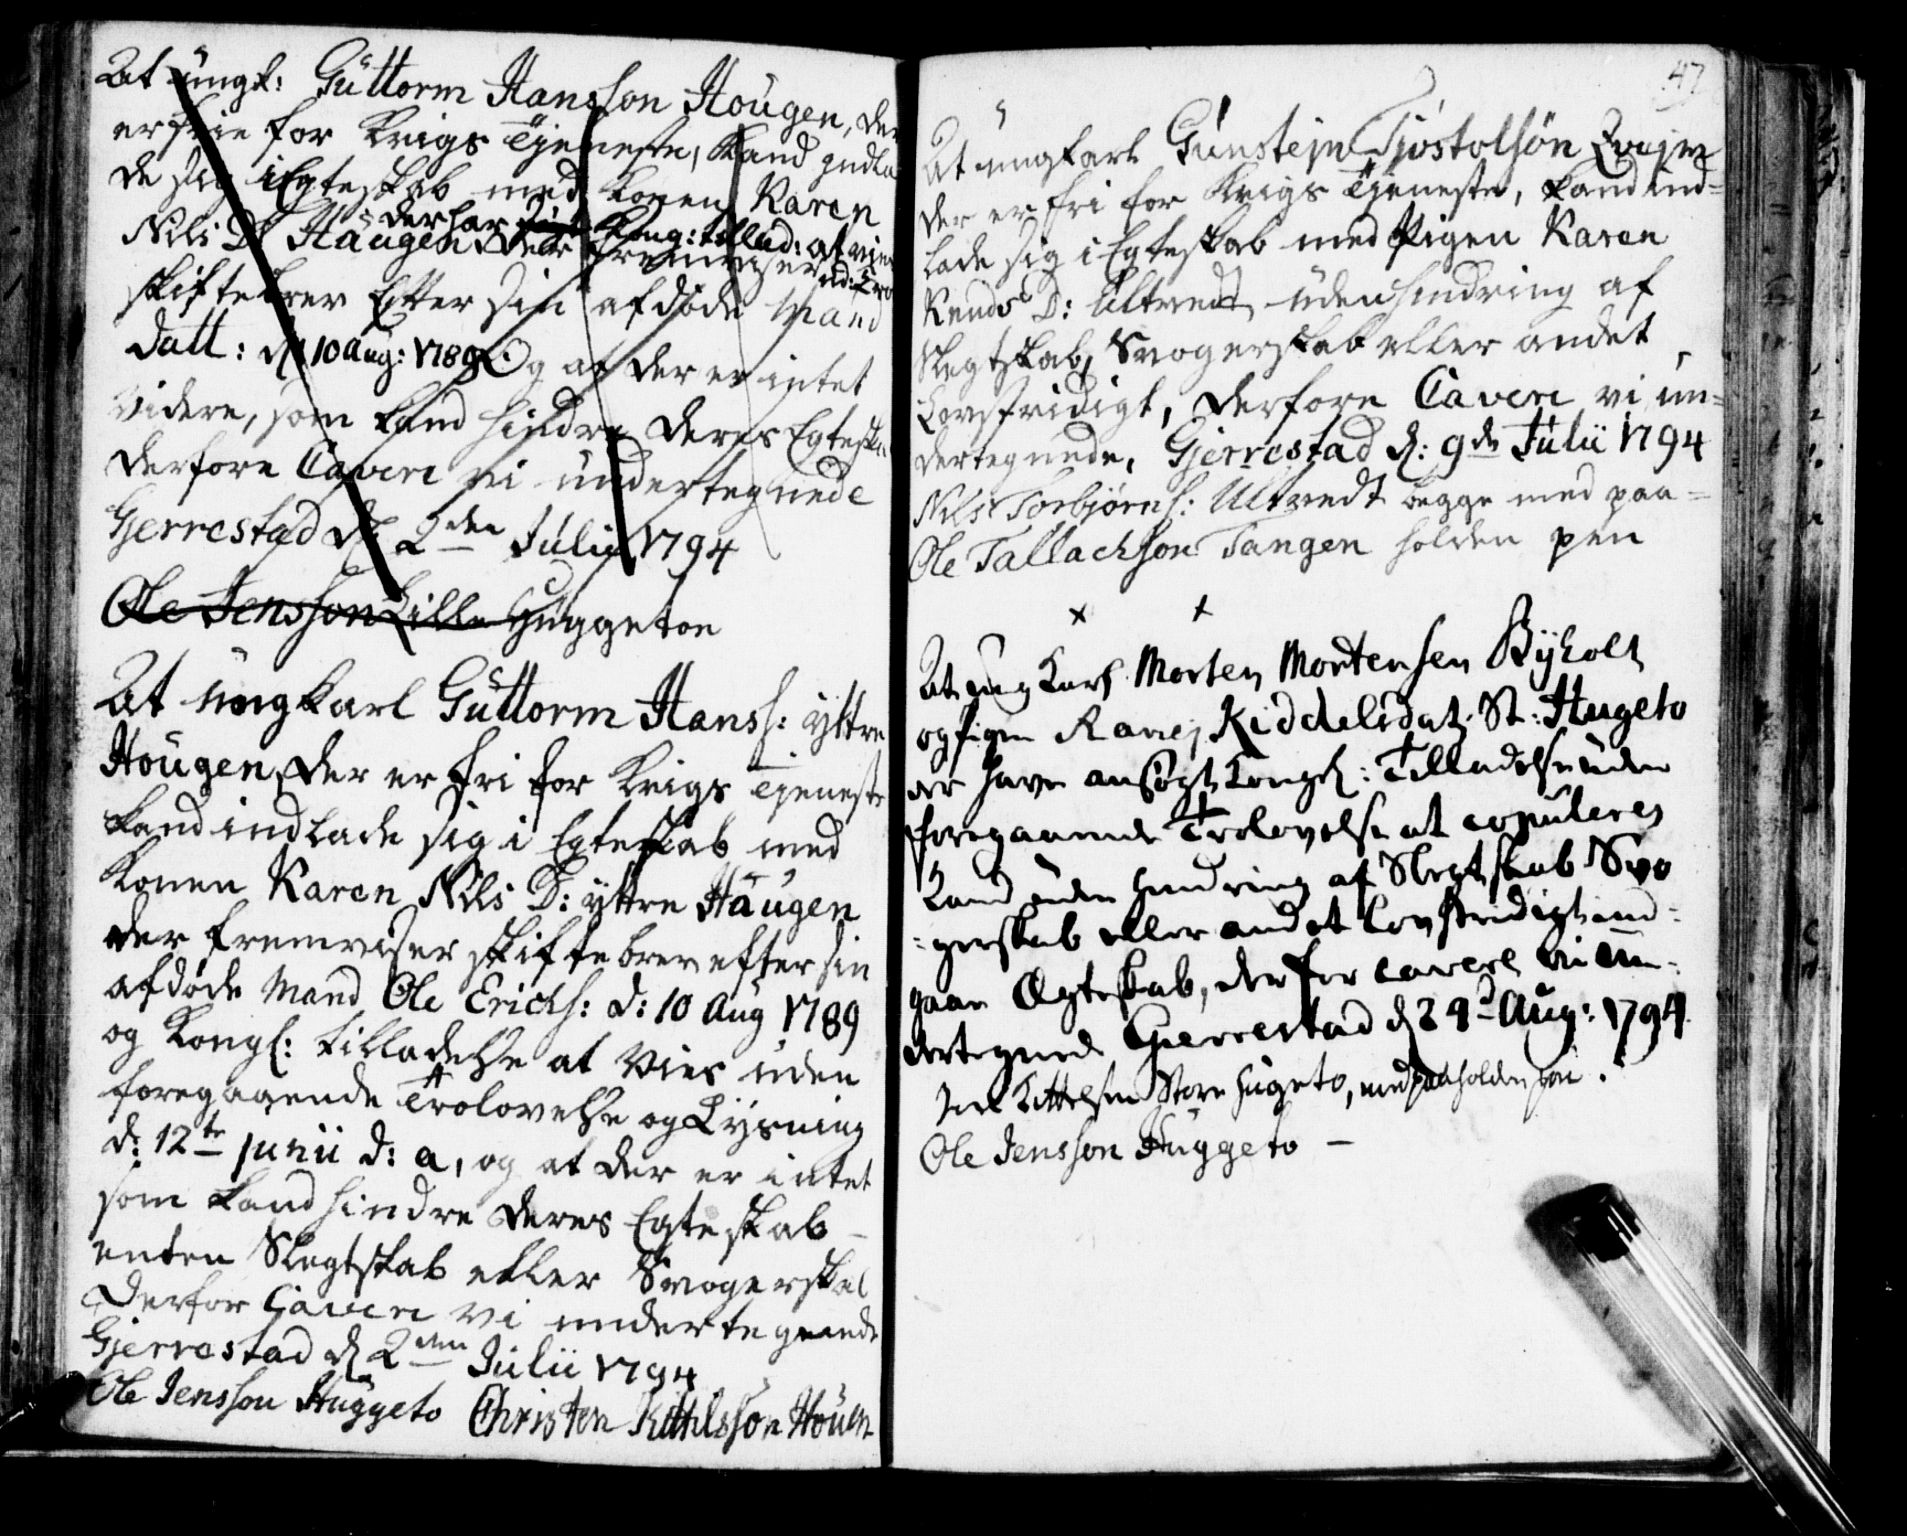 At ungk: Guttorm Hansson Hougen, der
er frie for Krigs Tjeneste, kand indla
de sig i Egteskab med Konen Karen
der har Kong: tillad: at vies
Nils D: Haugen der fremviser
skiftebrev Efter sin afdøde Mand
Datt: d: 10 Aug: 1789 Og at der er intet
videre, som kand hindre deres Egteska
derfore Cavere vi undertegnede
Gjerrestad d: 2den Julii 1794
Ole Jensson Lille Huggeton
At ungkarl Guttorm Hanss: yttre
Hougen, der er fri for Krigs Tjeneste
kand indlade sig i Egteskab med
Konen Karen Nils D: yttre Haugen
der fremviser skiftebrev efter sin
afdøde Mand Ole Erichs: d: 10 Aug 1789
og Kongl: tilladelse at Vies uden
foregaaende Trolovelse og Lysning
d: 12te junii d: a, og at der er intet
som kand hindre deres Egteskab
enten Slegtskab eller Svogerskab
Derfor Cavere vi undertegnede
Gjerrestad d 2den Julii 1794
Ole Jensson Huggeto Christen Kittilsson Houen
47
At ungkarl Gunstejn Tjøstolsøn
der er fri for Krigs Tjeneste, kand ind=
lade sig i Egteskab med Pigen Karen
Knuds D: Ultvedt uden hindring af
Slegtskab, Svogerskab eller andet
Lovstridigt, derfore Cavere vi un=
dertegnede, Gjerrestad d: 9de Julii 1794
Nils Torbjørns: Ultvedt begge med paa=
Ole Tallachson Tangen holden pen
At ung Karl Morten Mortensen Byholt
og pigen Ranej Kiddelsdat: St: Hugeto
er have ansøgt Kongl: Tilladelse uden
foregaaende Trolovelse at copuleres
Kand uden hindring af Slegtskab Svo
=gerskab eller andet lovstridigt ind=
gaae Ægteskab, derfor cavere vi un=
dertegnede Gierrestad d 24d Aug: 1794
Kittelsen Store Hugeto, med paaholden pen.
Ole Jensson Huggeto —